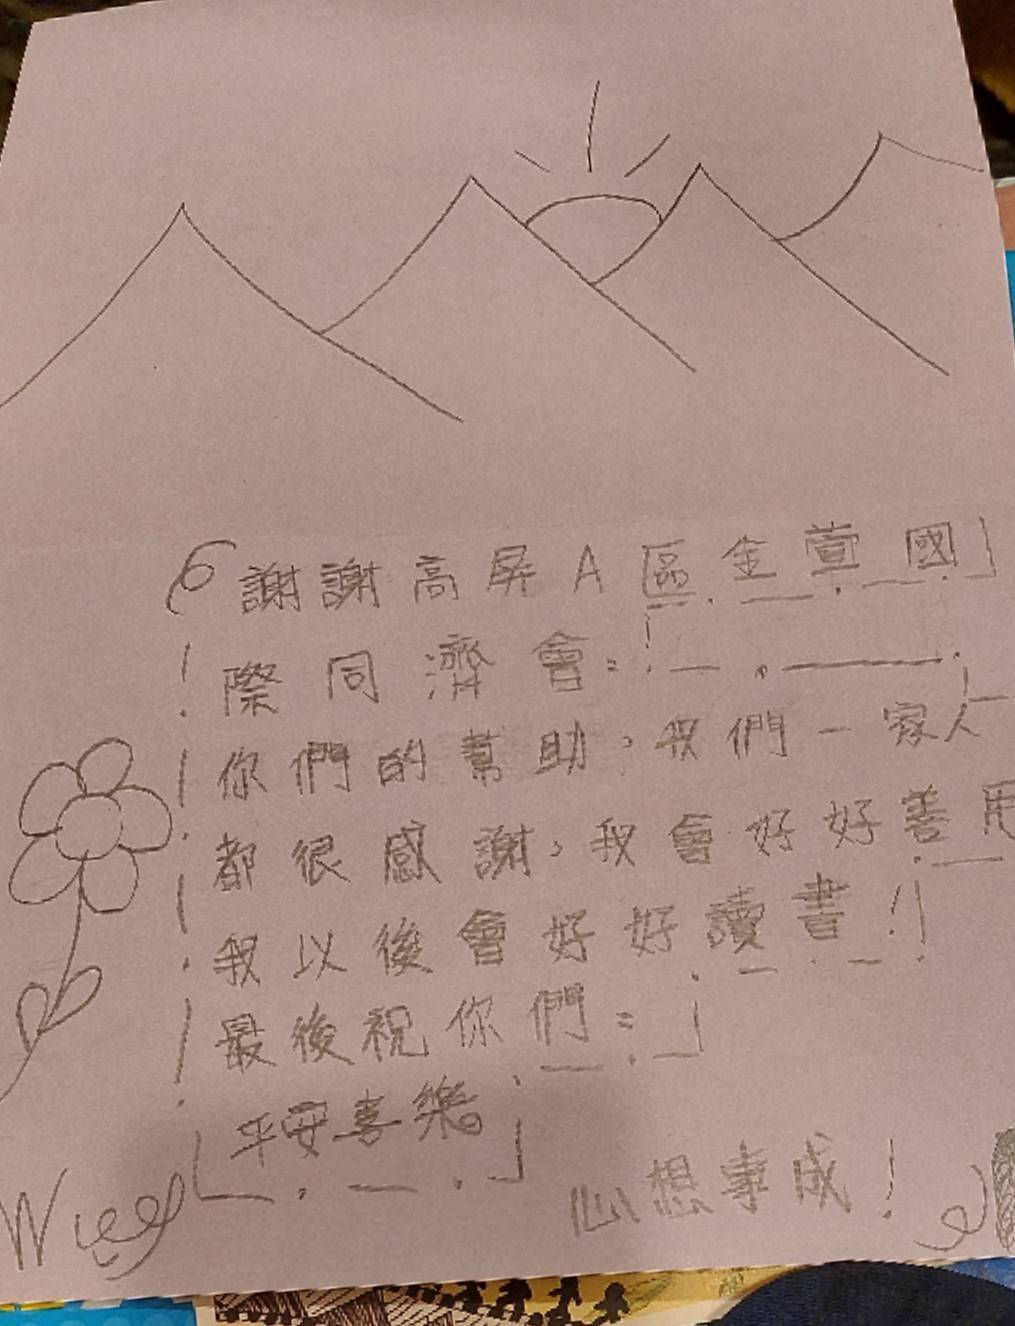 謝謝高屏A區金萱國
際同濟會:
你們的幫助,我們一家人
都很感謝,我會好好善用
我以後會好好讀書!
最後祝你們:
平安喜樂
心想事成!